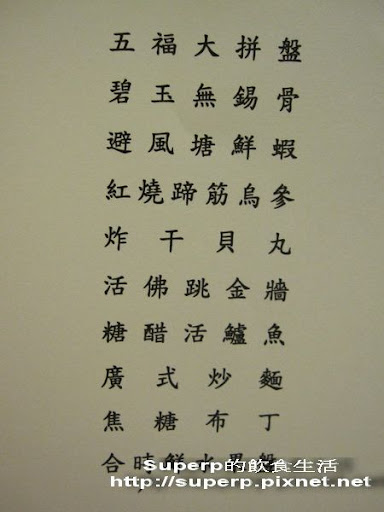 五福大拼盤
碧玉無錫骨
避風塘鮮蝦
紅燒蹄筋烏參
炸干貝丸
活佛跳金牆
糖醋活鱸魚
廣式炒麵
焦糖布丁
合時鮮水果盤
Superp的飲食生活
http://superp.pixnet.net